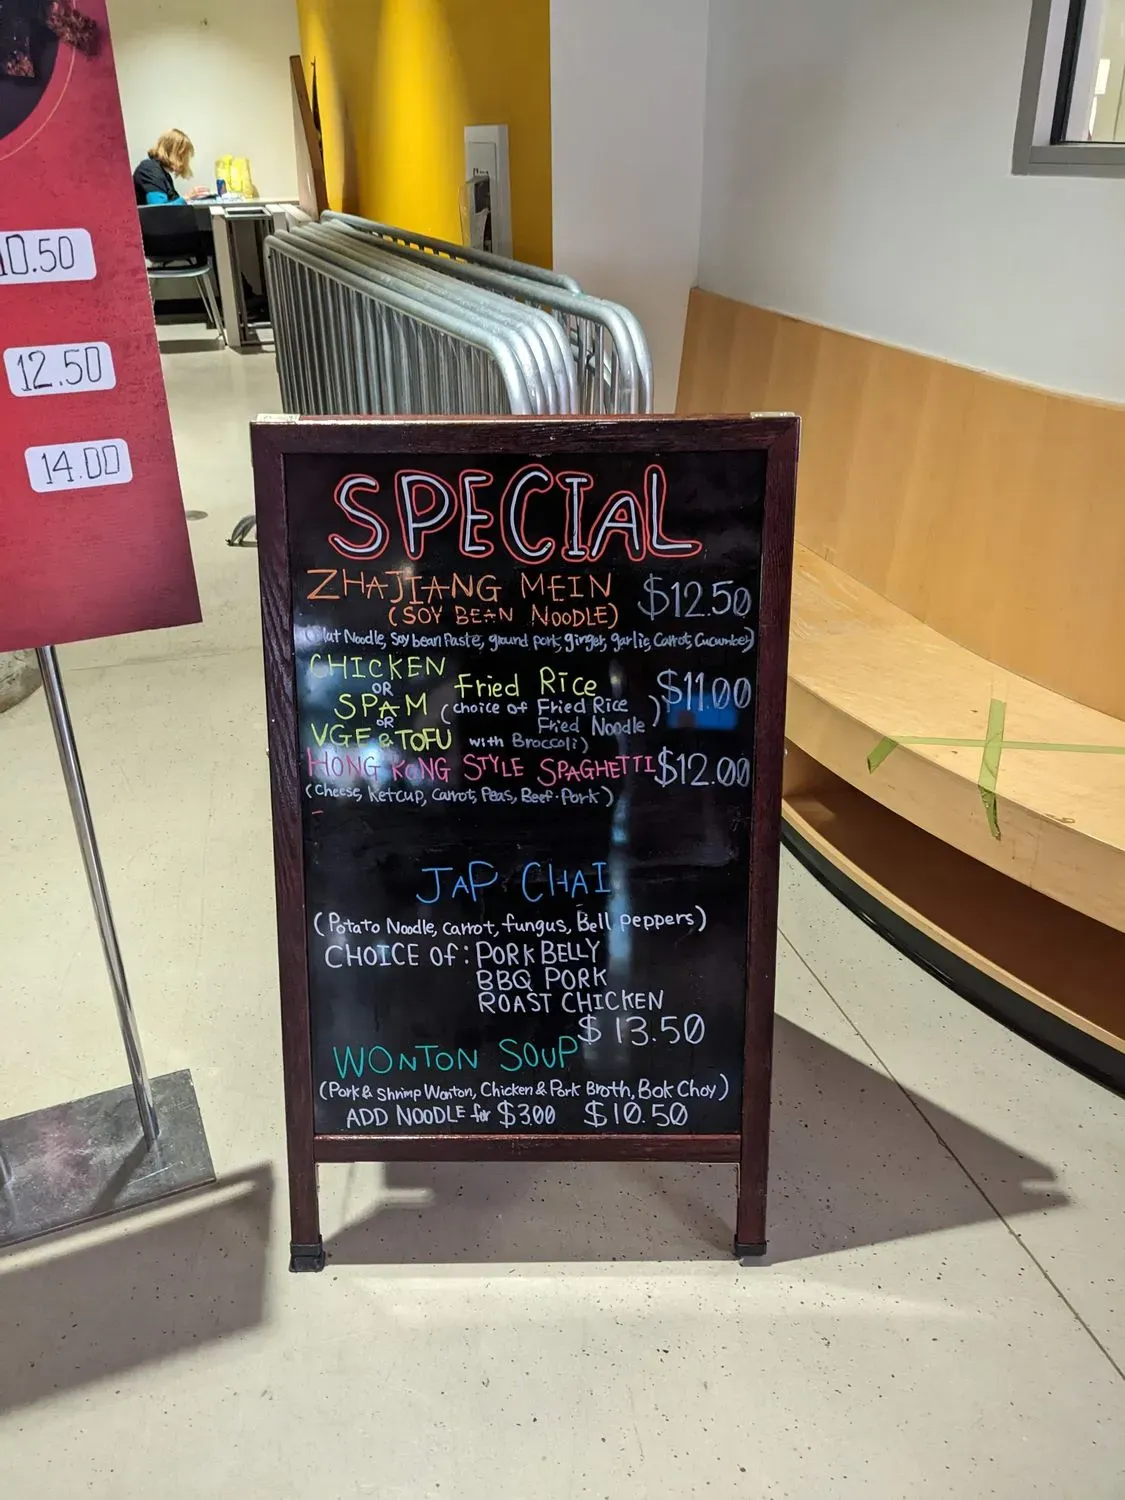 10.50
12.50
14.00
SPECIAL
ZHAJIANG MEIN $12.50
(SOY BEAN NOODLE)
(Flat Noodle, Soy bean Paste, ground pork, ginger, garlic, Carrot, Cucumber)
CHICKEN
OR
SPAM
OR
VGE & TOFU
Fried Rice $11.00
(choice of Fried Rice
Fried Noodle)
with Broccoli)
HONG KONG STYLE SPAGHETTI $12.00
(Cheese, Ketcup, Carrot, Peas, Beef-Pork)
JAP CHAI
(Potato Noodle, carrot, fungus, Bell peppers)
CHOICE of: PORK BELLY
BBQ PORK
ROAST CHICKEN
$13.50
WONTON SOUP
(Pork & Shrimp Wonton, Chicken & Pork Broth, Bok Choy)
ADD NOODLE for $3.00 $10.50